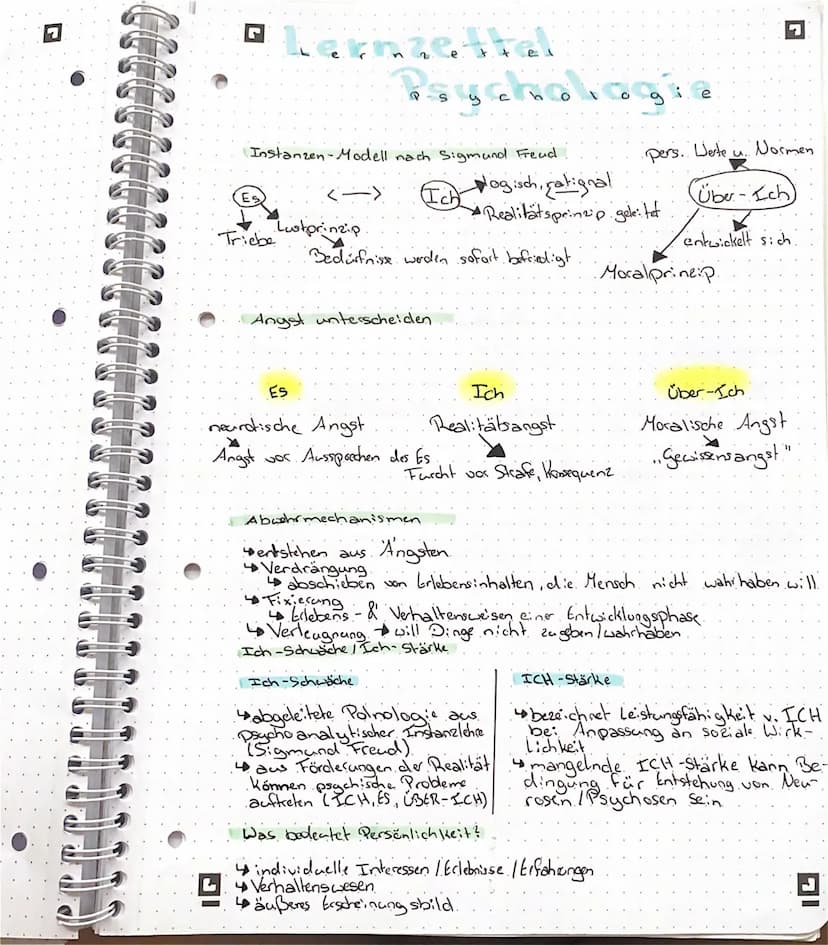 Lernzettel
Psychologie
Instanzen-Modell nach Sigmund Freud
pers. Werte u. Normen
Es
<-->
Ich
logisch, rational
Realitätsprinzip geleitet
Über-Ich
Triebe
Lustprinzip
Bedürfnisse werden sofort befriedigt
entwickelt sich
Moralprinzip
Angst unterscheiden
Es
Ich
Über-Ich
neurotische Angst
Realitätsangst
Moralische Angst
Angst vor Aussprachen des Es
Furcht vor Strafe, Konsequenz
„Gewissensangst"
Abwehrmechanismen
↳ entstehen aus Ängsten
↳ Verdrängung
↳ abschieben von Erlebensinhalten, die Mensch nicht wahrhaben will
↳ Fixierung
↳ Erlebens- & Verhaltensweisen einer Entwicklungsphase
↳ Verleugnung → will Dinge nicht zugeben/wahrhaben
Ich-Schwäche/Ich-Stärke
Ich-Schwäche
↳ abgeleitete aus
psychoanalytischer Instanzlehre
(Sigmund Freud)
↳ aus Förderungen der Realität
können psychische Probleme
auftreten (ICH, ES, ÜBER-ICH)
ICH-Stärke
↳ bezeichnet Leistungsfähigkeit v. ICH
bei Anpassung an soziale Wirk-
lichkeit
↳ mangelnde ICH-Stärke kann Be-
dingung für Entstehung von Neu-
rosen/Psychosen sein
Was bedeutet Persönlichkeit?
↳ individuelle Interessen/Erlebnisse/Erfahrungen
↳ Verhaltenswesen
↳ äußeres Erscheinungsbild